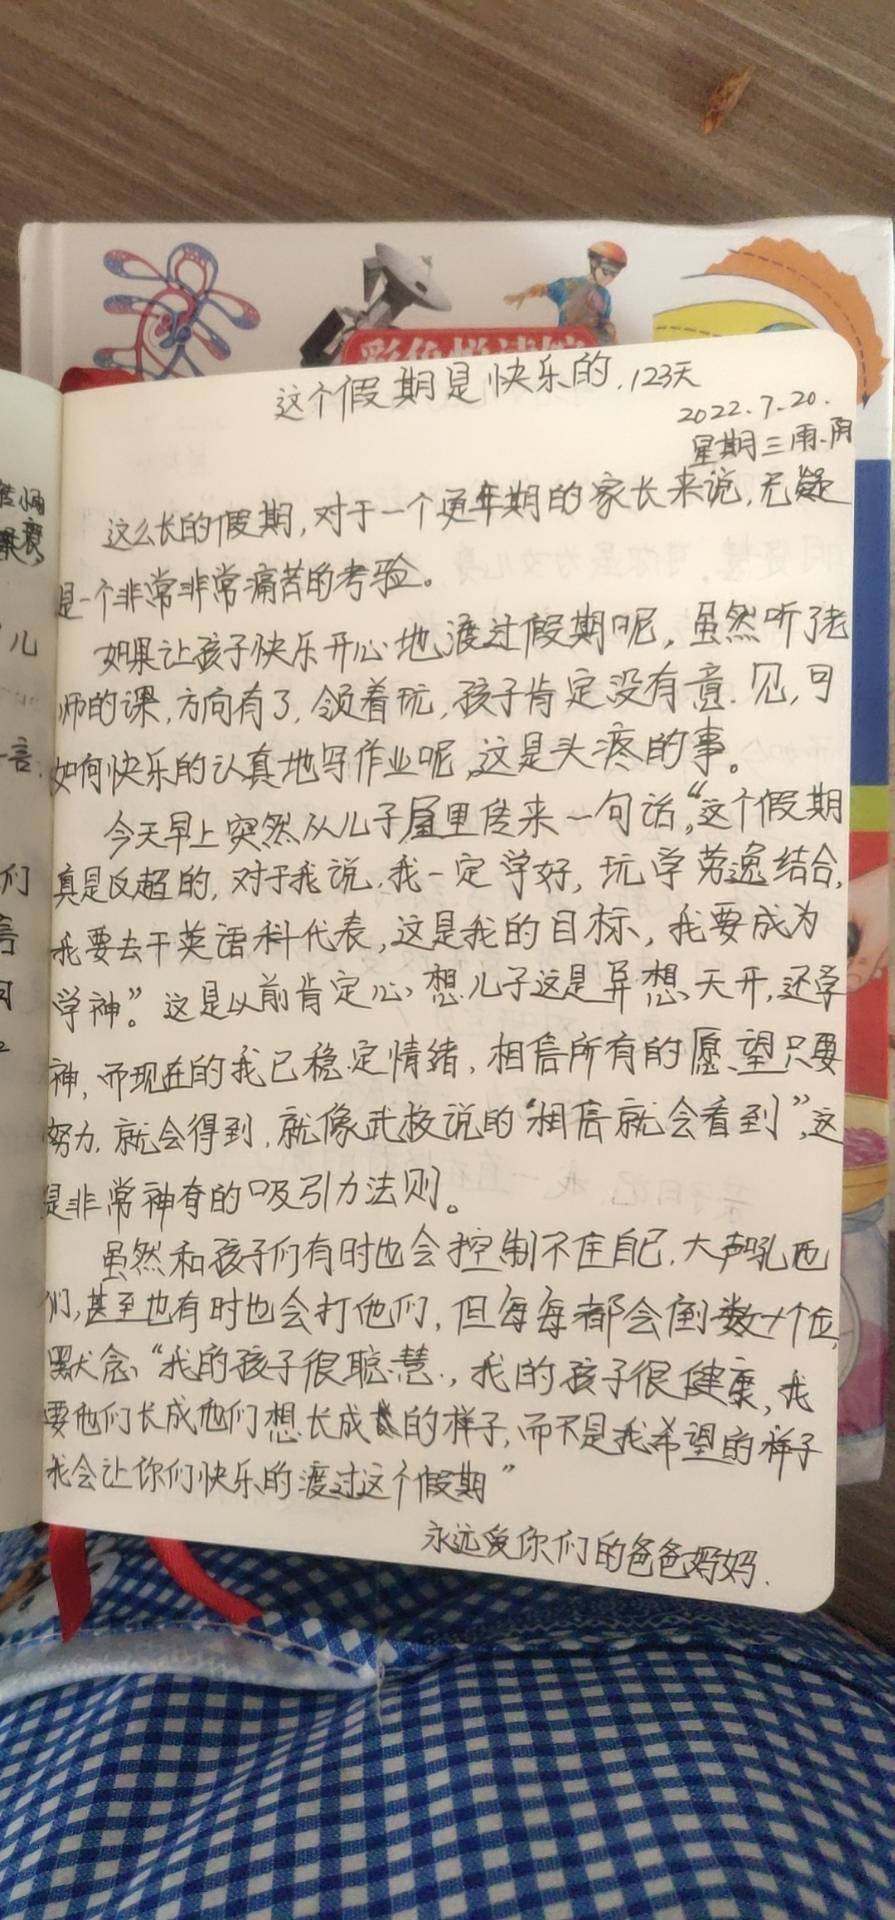 彩色悦读馆
这个假期是快乐的.123天
2022.7.20.
星期三雨.阴
这么长的假期,对于一个更年期的家长来说,无疑
是一个非常非常痛苦的考验。
如果让孩子快乐开心地渡过假期呢,虽然听了老
师的课,方向有了,领着玩,孩子肯定没有意见,可
如何快乐的认真地写作业呢,这是头疼的事。
今天早上突然从儿子屋里传来一句话,“这个假期
真是反超的,对于我说,我一定学好,玩学劳逸结合,
我要去干英语科代表,这是我的目标,我要成为
学神”。这是以前肯定心想儿子这是异想天开,还学
神,而现在的我已稳定情绪,相信所有的愿望只要
努力,就会得到,就像武校说的“相信就会看到”,这
是非常神奇的吸引力法则。
虽然和孩子们有时也会控制不住自己,大声吼他
们,甚至也有时也会打他们,但每每都会倒数十个位,
默念“我的孩子很聪慧,我的孩子很健康,我
要他们长成他们想长成的样子,而不是我希望的样子
我会让你们快乐的渡过这个假期”
永远爱你们的爸爸妈妈.
儿
言.
们